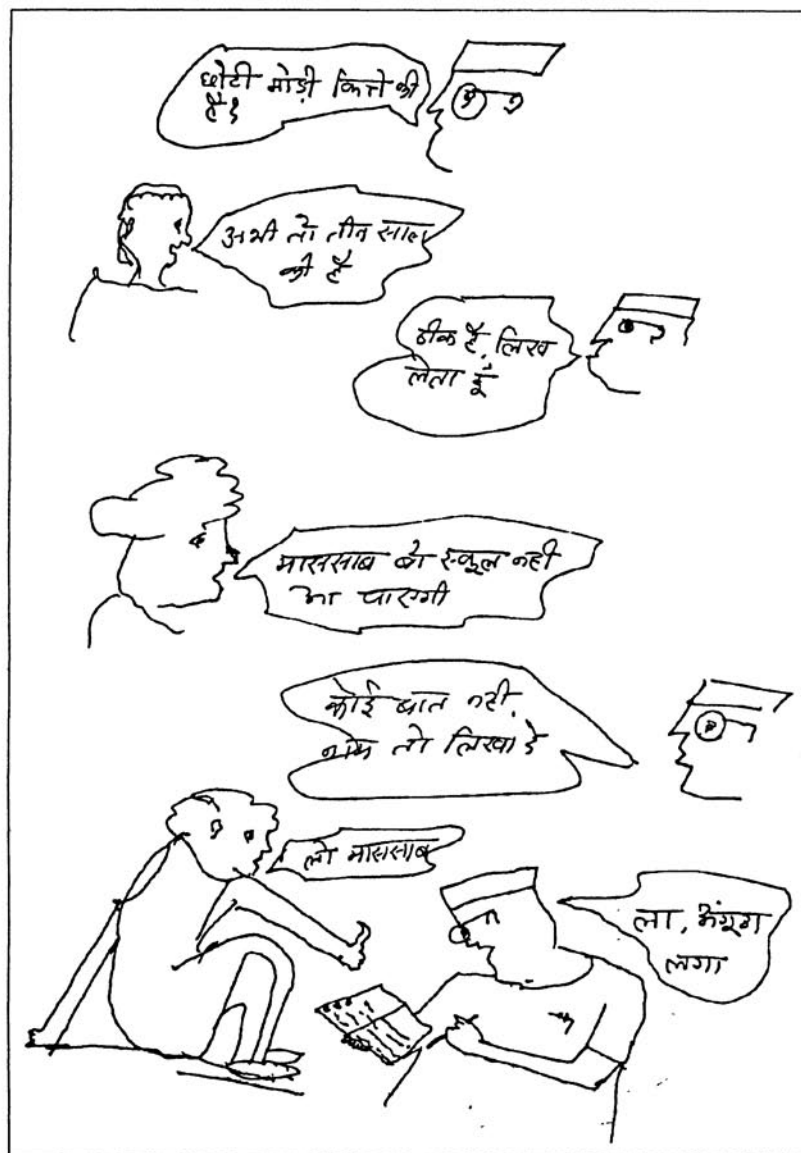 छोटी मोड़ी कित्ते की
है?
अभी तो तीन साल
की है
ठीक है, लिख
लेता हूँ
माससाब बो स्कूल नही
जा पाएगी
कोई बात नही,
नाम तो लिखा दे
लो माससाब
ला, अंगूठा
लगा